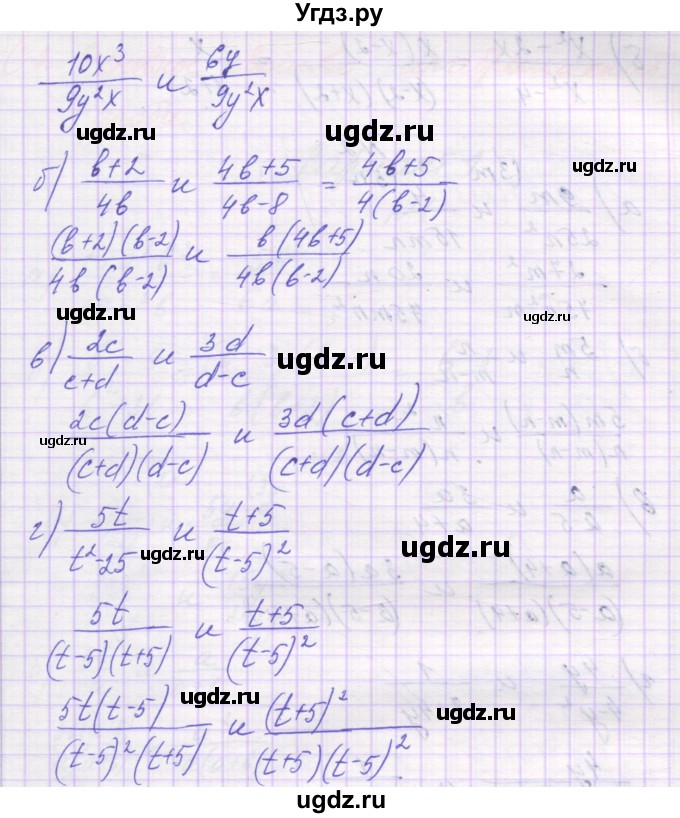 Угдз.ру
10x³/9y²x и 6y/9y²x
ugdz.ru ugdz.ru
б) b+2/4b и 4b+5/4b-8 = 4b+5/4(b-2)
ugdz.ru
(b+2)(b-2)/4b(b-2) и b(4b+5)/4b(b-2)
ugdz.ru ugdz.ru
в) 2c/c+d и 3d/d-c
ugdz.ru
2c(d-c)/(c+d)(d-c) и 3d(c+d)/(c+d)(d-c)
ugdz.ru
г) 5t/t²-25 и t+5/(t-5)²
ugdz.ru ugdz.ru
5t/(t-5)(t+5) и t+5/(t-5)²
5t(t-5)/(t-5)²(t+5) и (t+5)²/(t+5)(t-5)²
ugdz.ru ugdz.ru
ugdz.ru
ugdz.ru